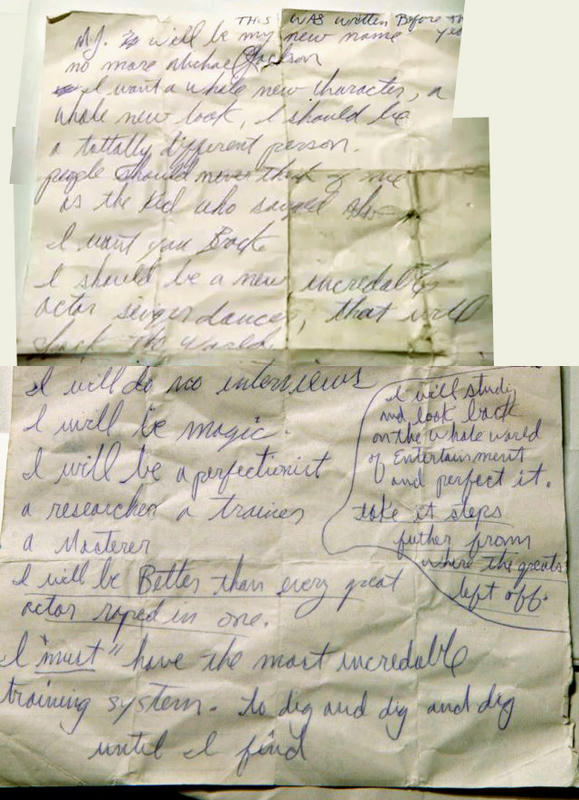 THIS WAS written Before th
yea
M.J. will be my new name
no more Michael Jackson
I want a whole new character, a
whole new look, I should be
a tottally different person.
people should never think of me
as the kid who sang
I want you Back
I should be a new incredable
actor singer dancer, that will
shock the world.
I will do no interviews
I will be magic.
I will be a perfectionist
a researcher a trainer
a Masterer
I will be Better than every great
actor roped in one.
I "must" have the most incredable
training system. to dig and dig and dig
until I find
I will study
and look back
on the whole world
of Entertainment
and perfect it.
take it steps
futher from
where the greats
left off.